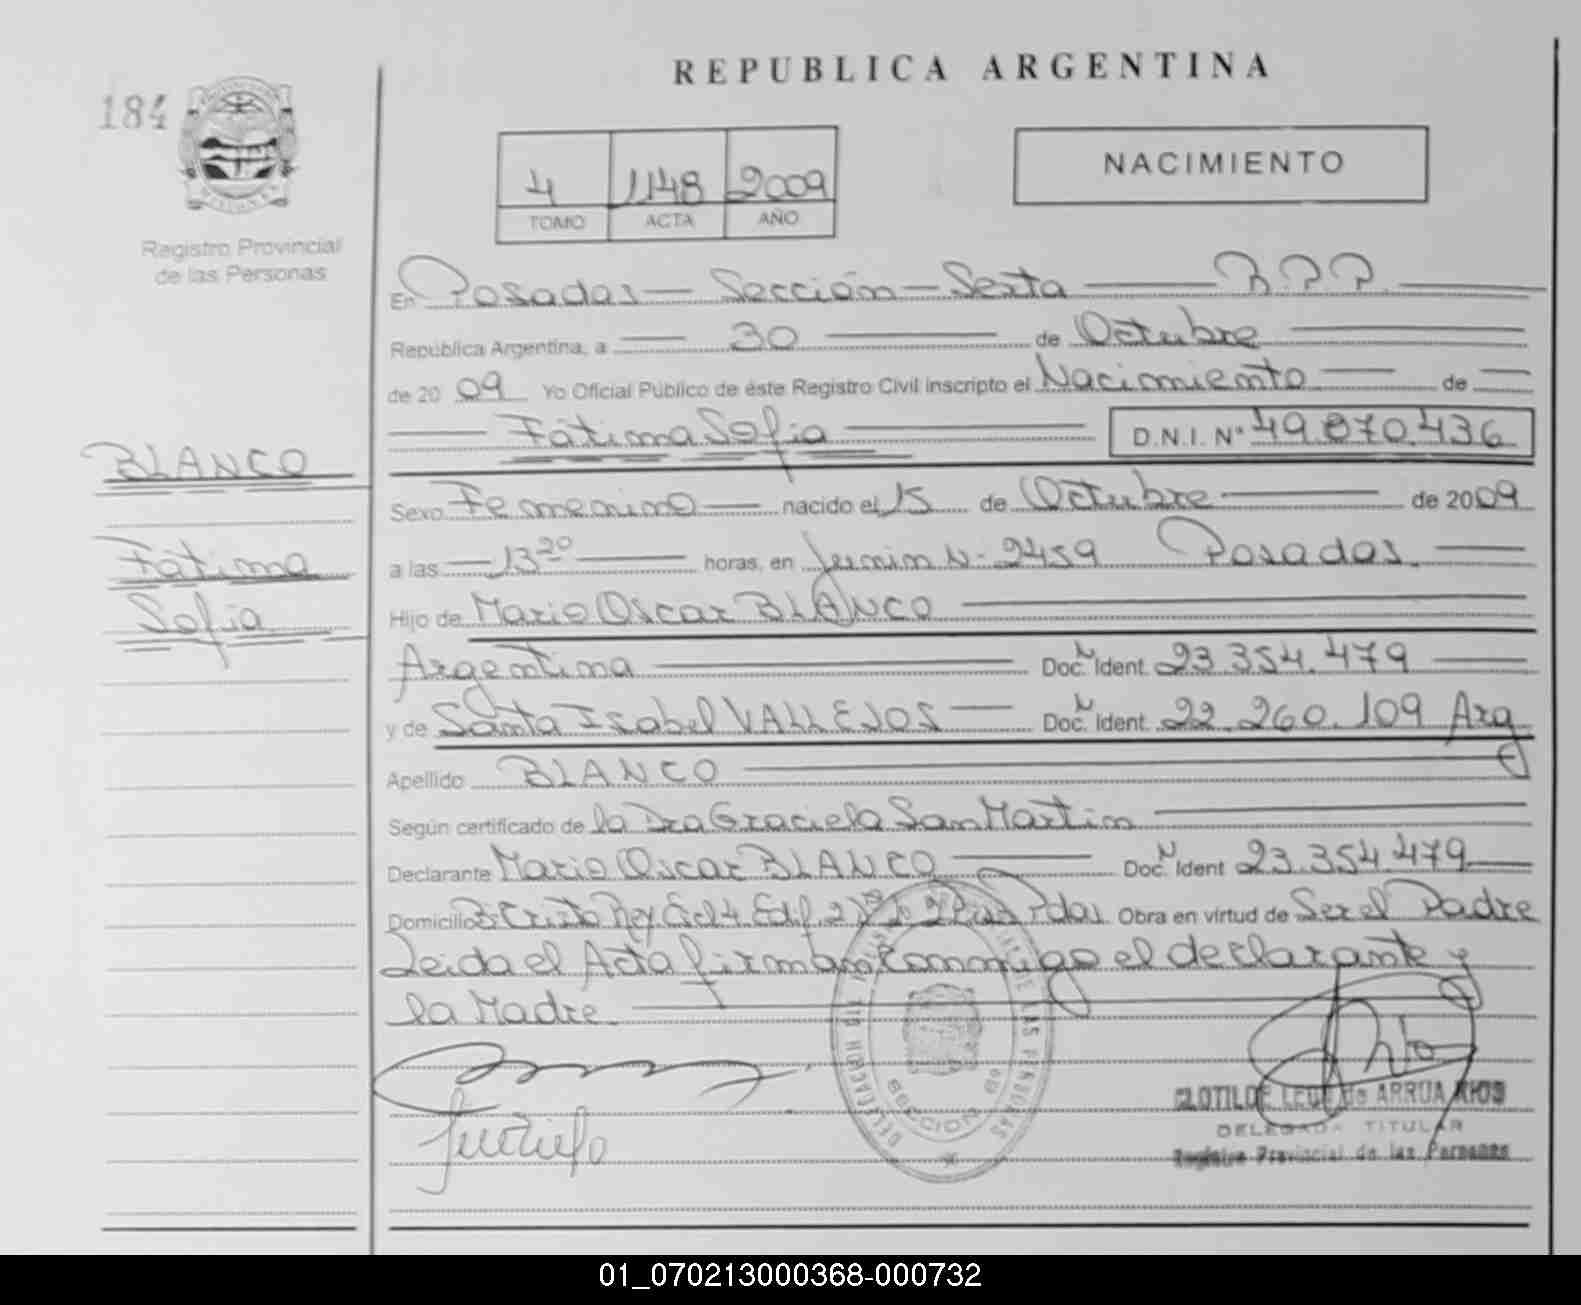 REPUBLICA ARGENTINA
184
MISIONES
Registro Provincial
de las Personas
4 1148 2009
TOMO ACTA AÑO
NACIMIENTO
En Posadas - Sección - Sexta R.P.P.
República Argentina, a 30 de Octubre
de 20 09 Yo Oficial Público de éste Registro Civil inscripto el Nacimiento de
Fátima Sofia D.N.I. Nº 49.870.436
BLANCO
Fátima
Sofia
Sexo Femenino nacido el 15 de Octubre de 2009
a las 13 20 horas, en Junin N- 2459 Posadas.
Hijo de Mario Oscar BLANCO
Argentina Doc. Ident. 23.354.479
y de Santa Isabel VALLEJOS Doc. Ident. 22.260.109 Arg
Apellido BLANCO
Según certificado de la Dra Graciela San Martin
Declarante Mario Oscar BLANCO Doc. Ident 23.354.479
Domicilio Bº Cristo Rey Edif. 2 Pdas Obra en virtud de Ser el Padre
Leida el Acta firman conmigo el declarante y
la Madre.
DELEGACION
SECCION 6º
DE LAS PERSONAS
CLOTILDE LEUZ de ARRUA RIOS
DELEGADA TITULAR
Registro Provincial de las Personas
01_070213000368-000732